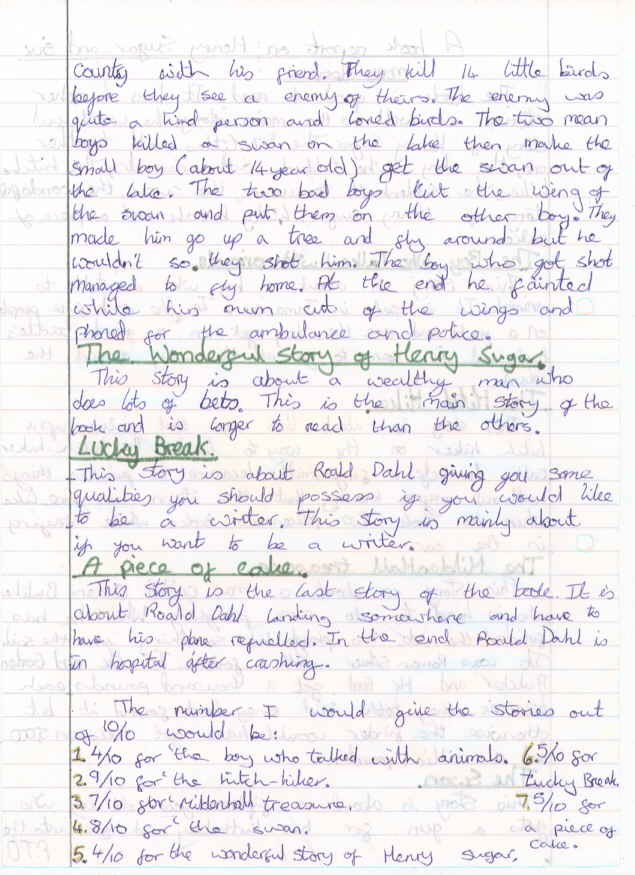 County with his friend. They kill 14 little birds
before they see a enemy of theirs. The enemy was
quite a kind person and loved birds. The two mean
boys killed a swan on the lake then make the
small boy (about 14 year old) get the swan out of
the lake. The two bad boys cut the wing of
the swan and put them on the other boy. They
made him go up a tree and fly around but he
wouldn't so they shot him. The boy who got shot
managed to fly home. At the end he fainted
while his mum cut of the wings and
phoned for the ambulance and police.
The Wonderful Story of Henry Sugar.
This story is about a wealthy man who
does lots of bets. This is the main story of the
book and is longer to read than the others.
Lucky Break.
This story is about Roald Dahl giving you some
qualities you should possess if you would like
to be a writer. This story is mainly about
if you want to be a writer.
A piece of cake.
This story is the last story of the book. It is
about Roald Dahl landing somewhere and have to
have his plane refuelled. In the end Roald Dahl is
in hospital after crashing.
The number I would give the stories out
of 10/10 would be:
1. 4/10 for 'the boy who talked with animals. 6. 5/10 for
2. 9/10 for 'the hitch-hiker. Lucky Break.
3. 7/10 for 'Mildenhall treasure. 7. 5/10 for
4. 8/10 for 'the swan. a piece of
5. 4/10 for the wonderful story of Henry sugar. cake.
PTO